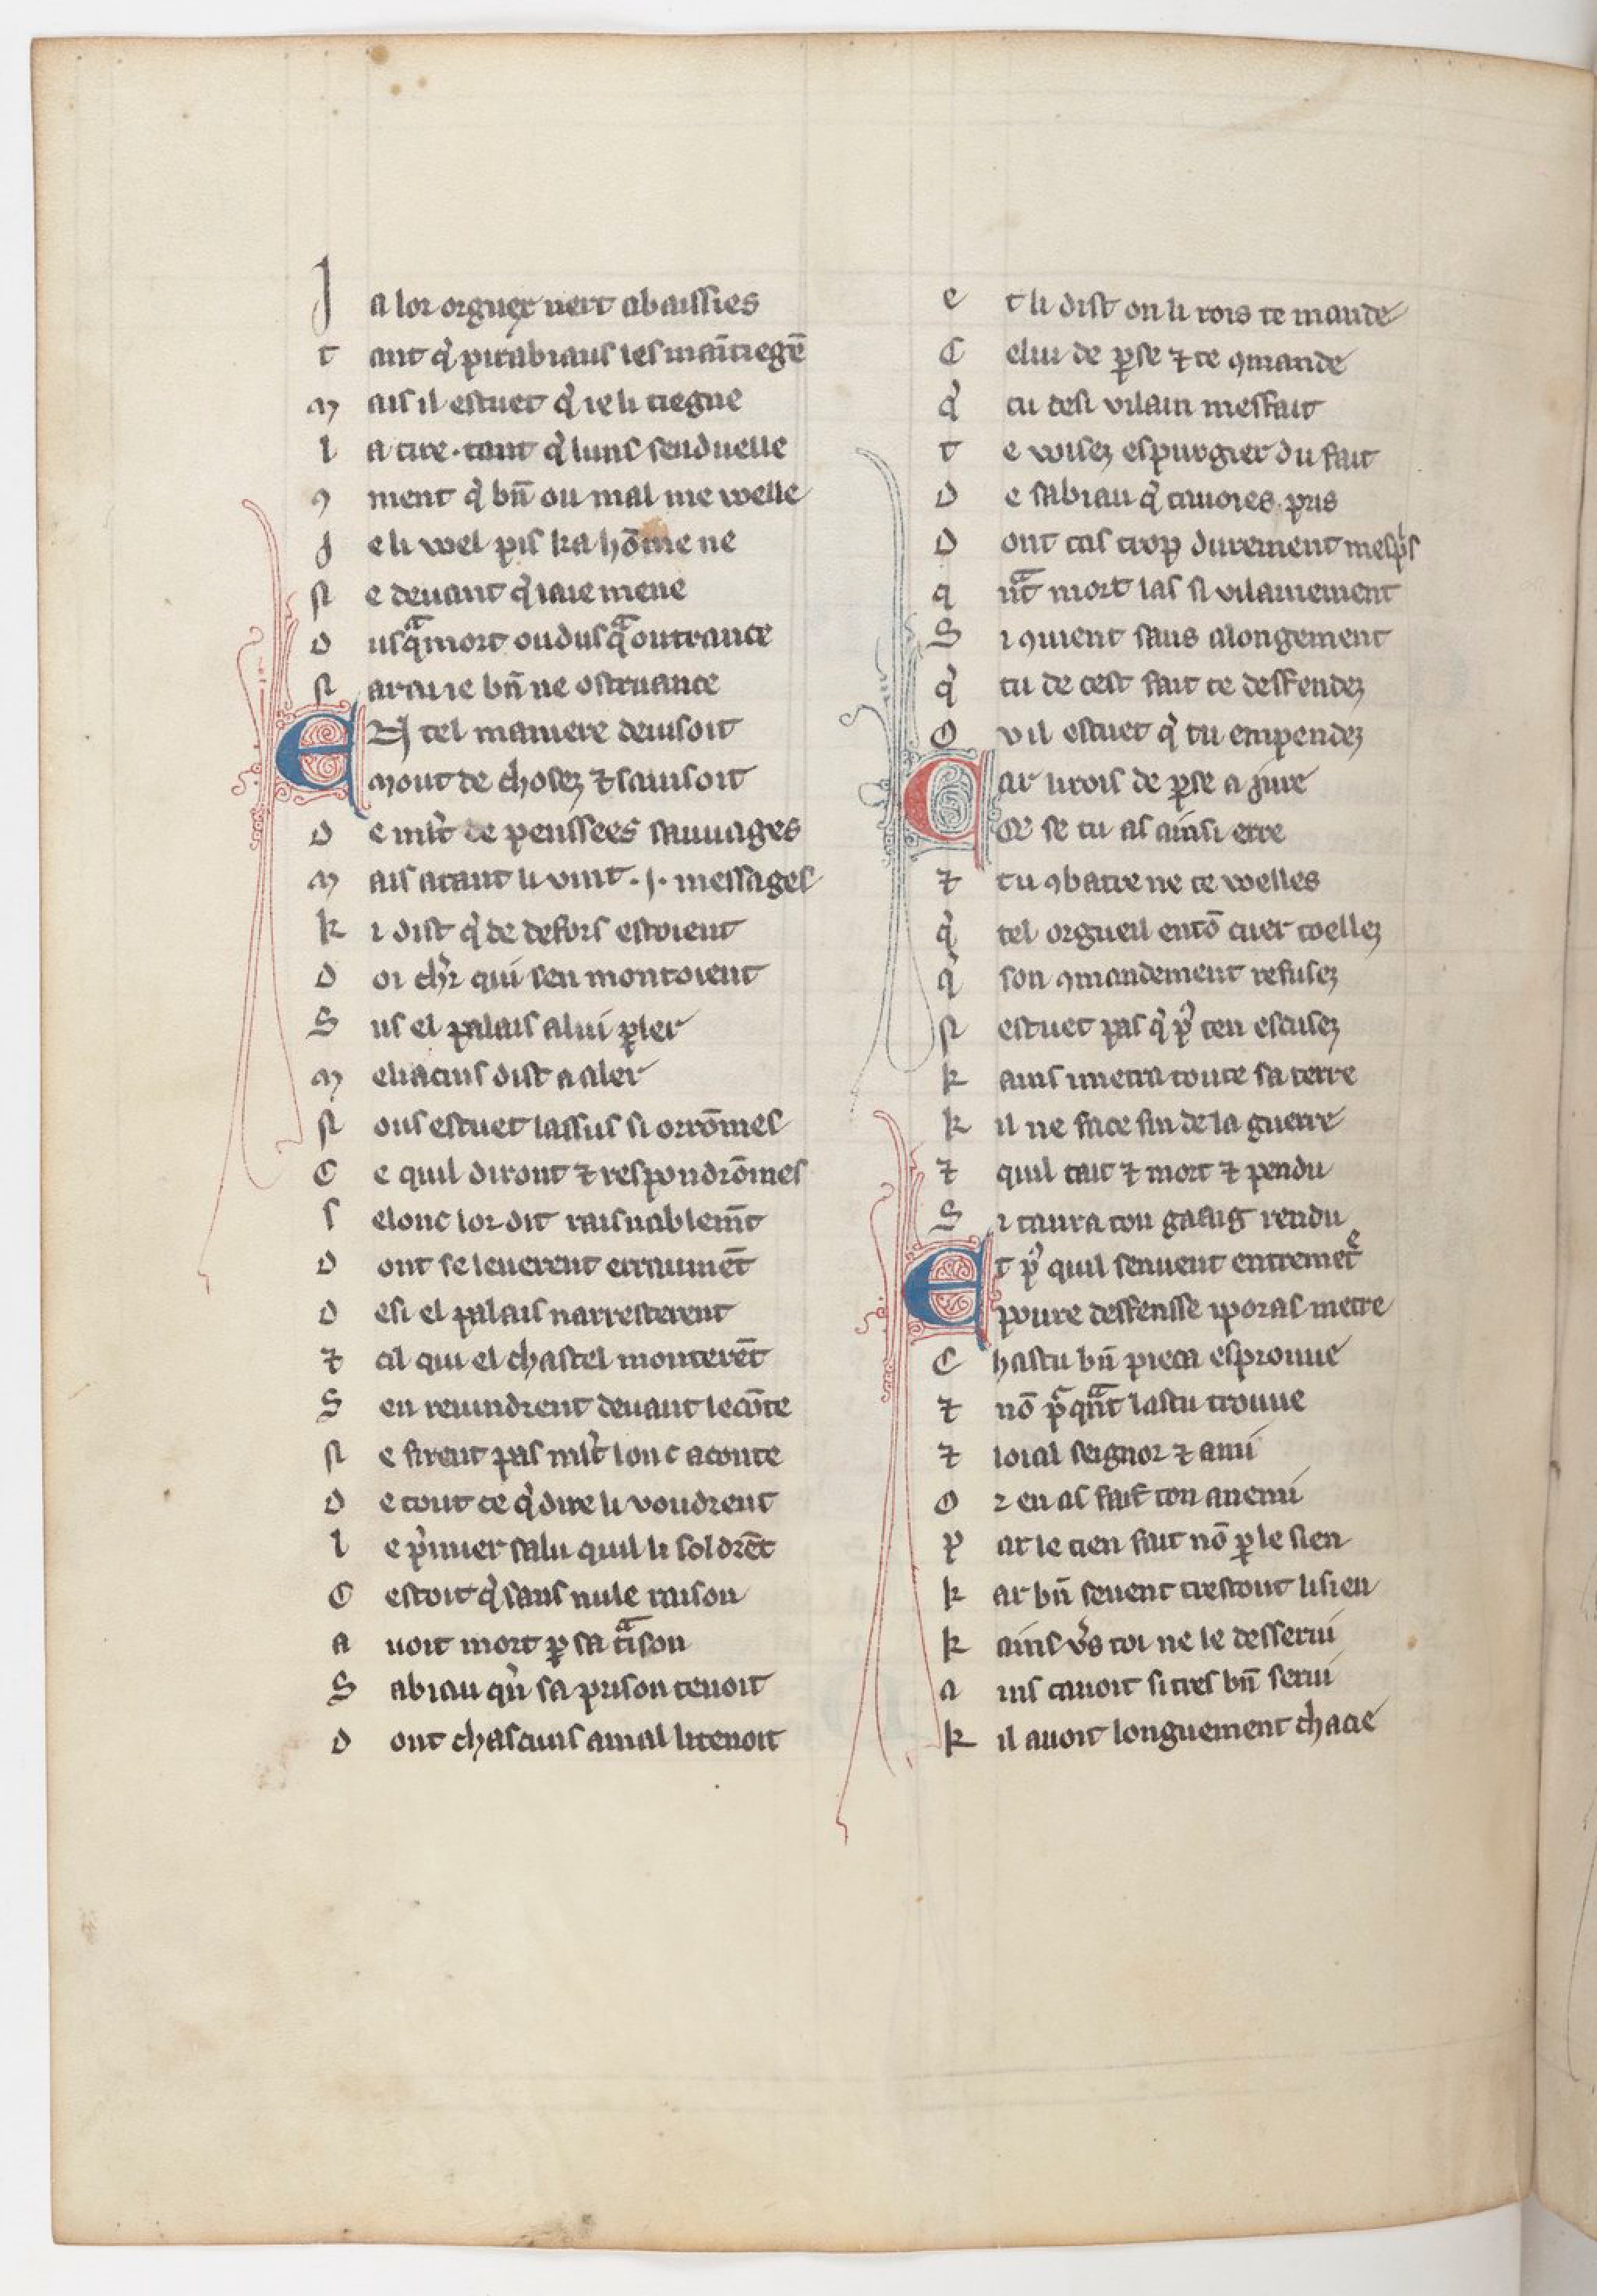 Ja lor orguex niert abaissies
tant q̾ pirabiaus les maītiegē
mais il estuet q̾ ie li tiegne
la tire . tant q̾ luns sen duelle
ꝯment q̾ bn̄ ou mal me welle
Je li wel pis ka hōme ne
ne deuant q̾ iaie mene
dusqᵃmort ou dusqᵃ outrance
narai ie bn̄ ne ostenance
EN tel maniere deuisoit
Mout de chosez ⁊ sauisoit
de ml̾t de penssees sauuages
mais atant li vint .j. messages
ki dist q̾ de defors estoient
doi ch̾r qui sen montoient
Sus el palais a lui ꝑler
meliacins dist a aler
nous estuet lassus si orrōmes
Ce quil diront ⁊ respondrōmes
selonc lor dit raisnablem̄t
dont se leuerent erraumēt
desi el palais narresterent
⁊ cil qui el chastel monterēt
Sen reuindrent deuant le cōte
ne firent pas ml̾t lonc aconte
de tout ce q̾ dire li voudrent
le p̾mier salu quil li soldrēt
Cestoit q̾ sans nule raison
auoit mort ꝑ sa tᵃison
Sabiau qu̾ sa prison tenoit
dont chascuns a mal li tenoit
et li dist on li rois te mande
Celui de ꝑse ⁊ te ꝯmande
q̾ tu desi vilain mesfait
te voisez espurgier du fait
de sabiau q̾ tauoies pris
dont tas trop durement mesp̾s
qn̄ᵃt mort las si vilainement
Si ꝯuient sans alongement
q̾ tu de cest fait te desfendez
Ou il estuet q̾ tu en pendez
Car li rois de ꝑse a jure
Qe se tu as ainsi erre
⁊ tu ꝯbatre ne te welles
q̾ tel orgueil en tō cuer coellez
q̾ son ꝯmandement refusez
nestuet pas q̾ p̾ ten escusez
kains i metra toute sa terre
kil ne face fin de la guerre
⁊ quil tait ⁊ mort ⁊ pendu
Si taura ton gaaig rendu
Et p̾ quil senuent entremetᵉ
poure desfensse i poras metre
Chastu bn̄ pieca esprouue
⁊ nō pᵃqn̄ᵃt lastu trouue
⁊ loial seignor ⁊ ami
Or en as fait ton anemi
par le tien fait nō ꝑ le sien
kar bn̄ seuent trestout li sien
kains v̾s toi ne le desserui
ains tauoit si tres bn̄ serui
kil auoit longuement chacie